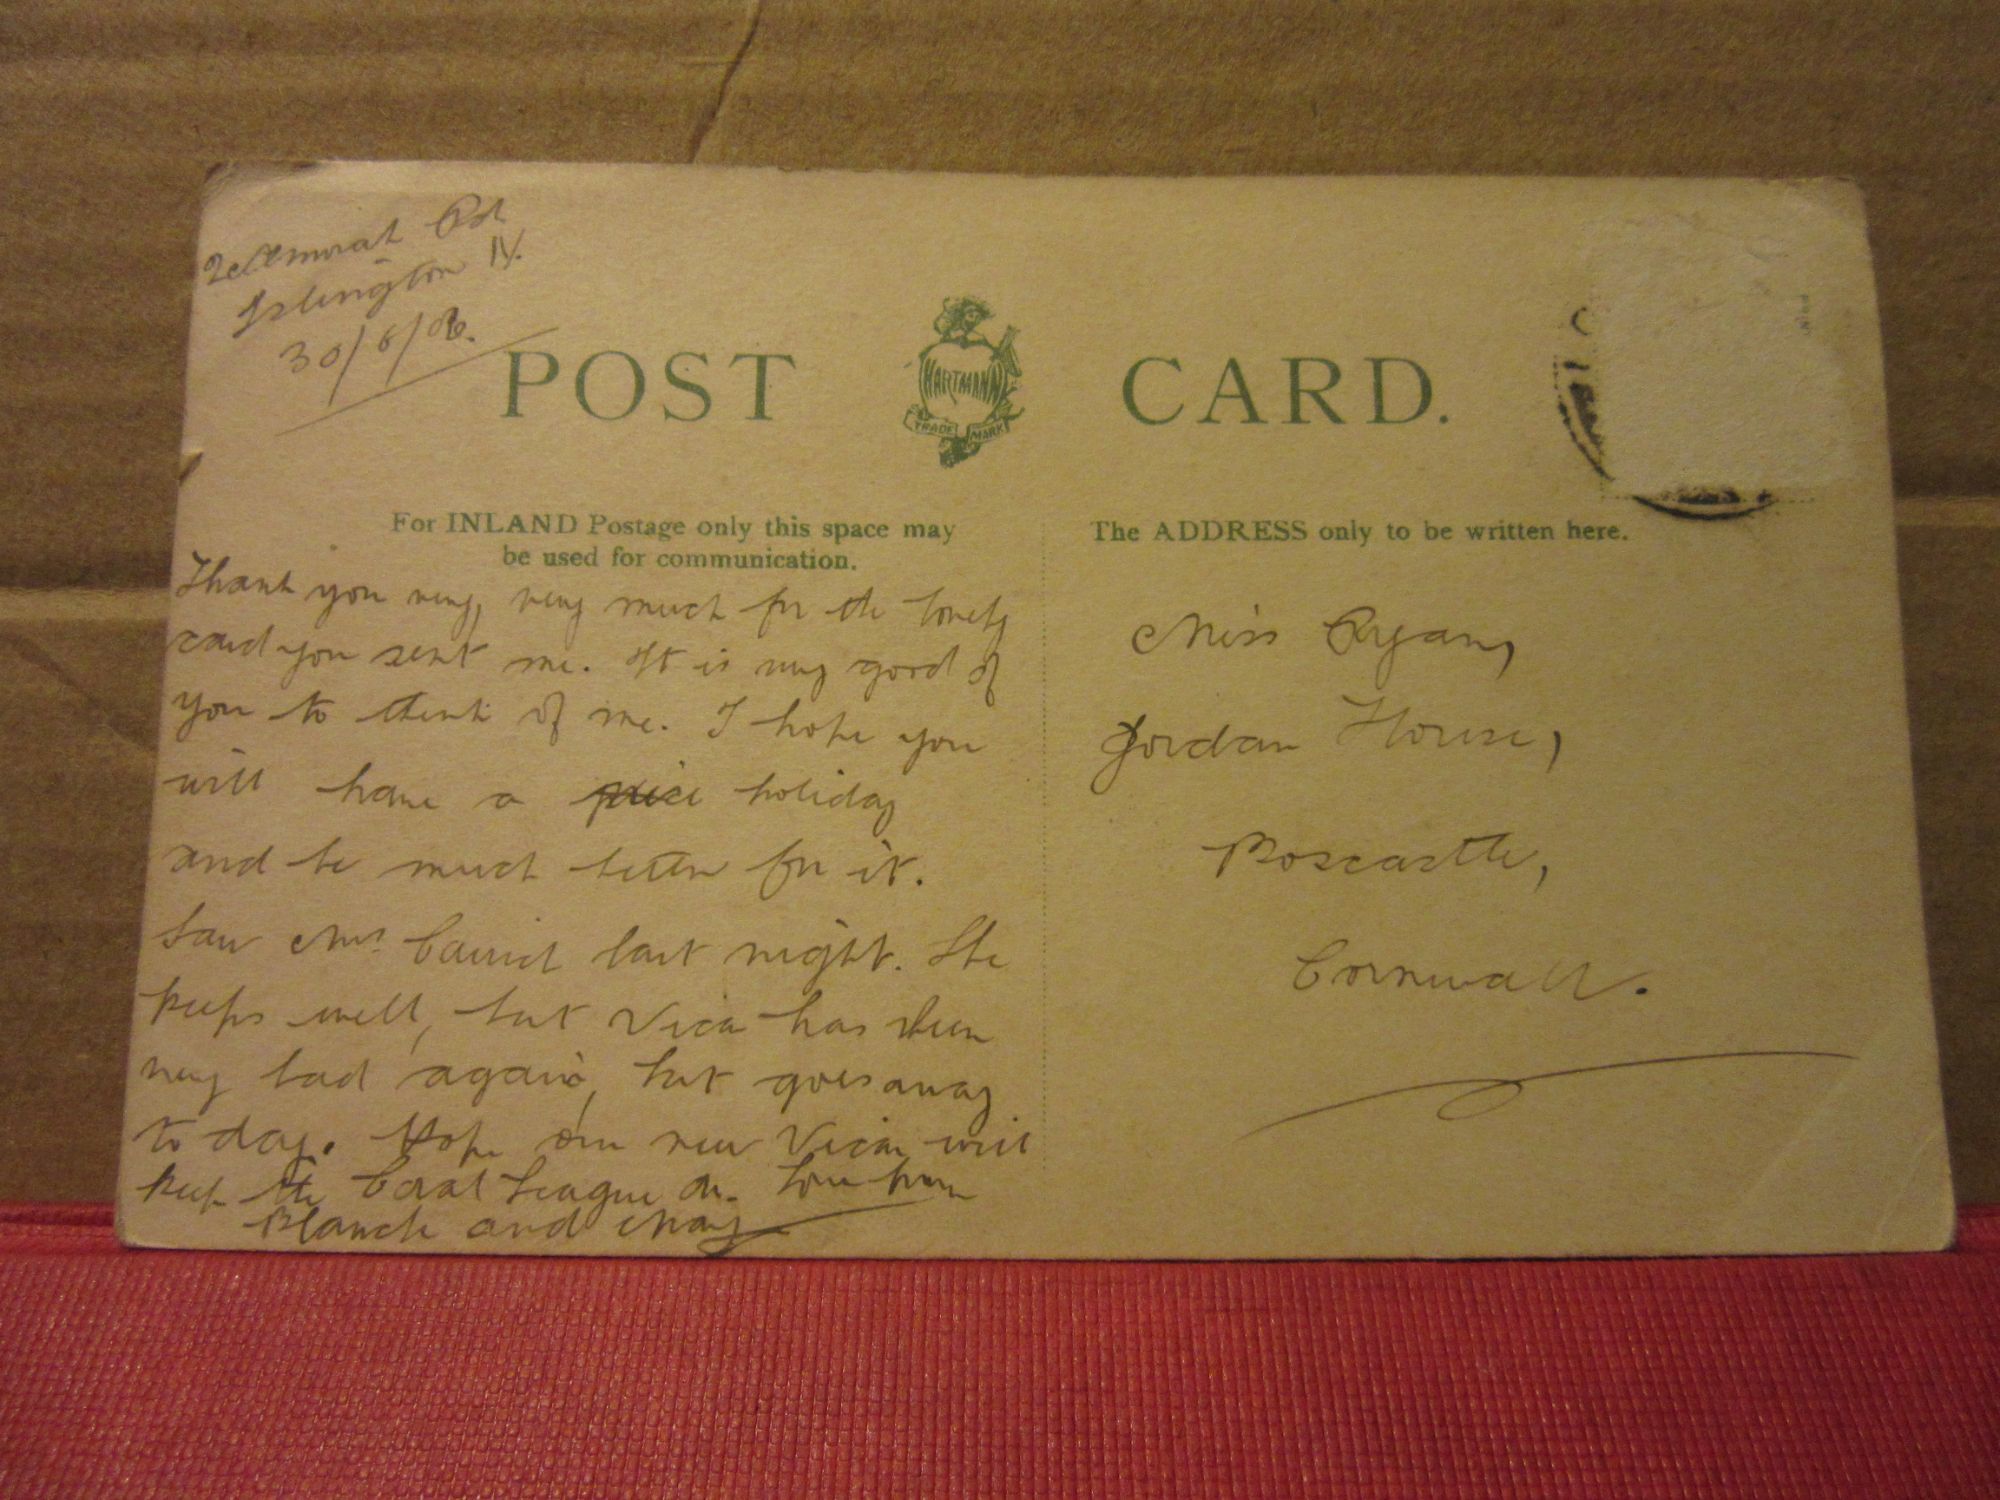 Rd
Islington N.
30/6/06.
POST CARD.
HARTMANN
TRADE MARK
For INLAND Postage only this space may
be used for communication.
The ADDRESS only to be written here.
Thank you very, very much for the lovely
card you sent me. It is very good of
you to think of me. I hope you
will have a nice holiday
and be much better for it.
Saw Mrs last night. She
keeps well, but Vicar has been
very bad again, but goes away
to day. Hope our new Vicar will
keep the Coral League on. Love from
Blanch and May
Miss Ryan,
Jordan House,
Boscastle,
Cornwall.